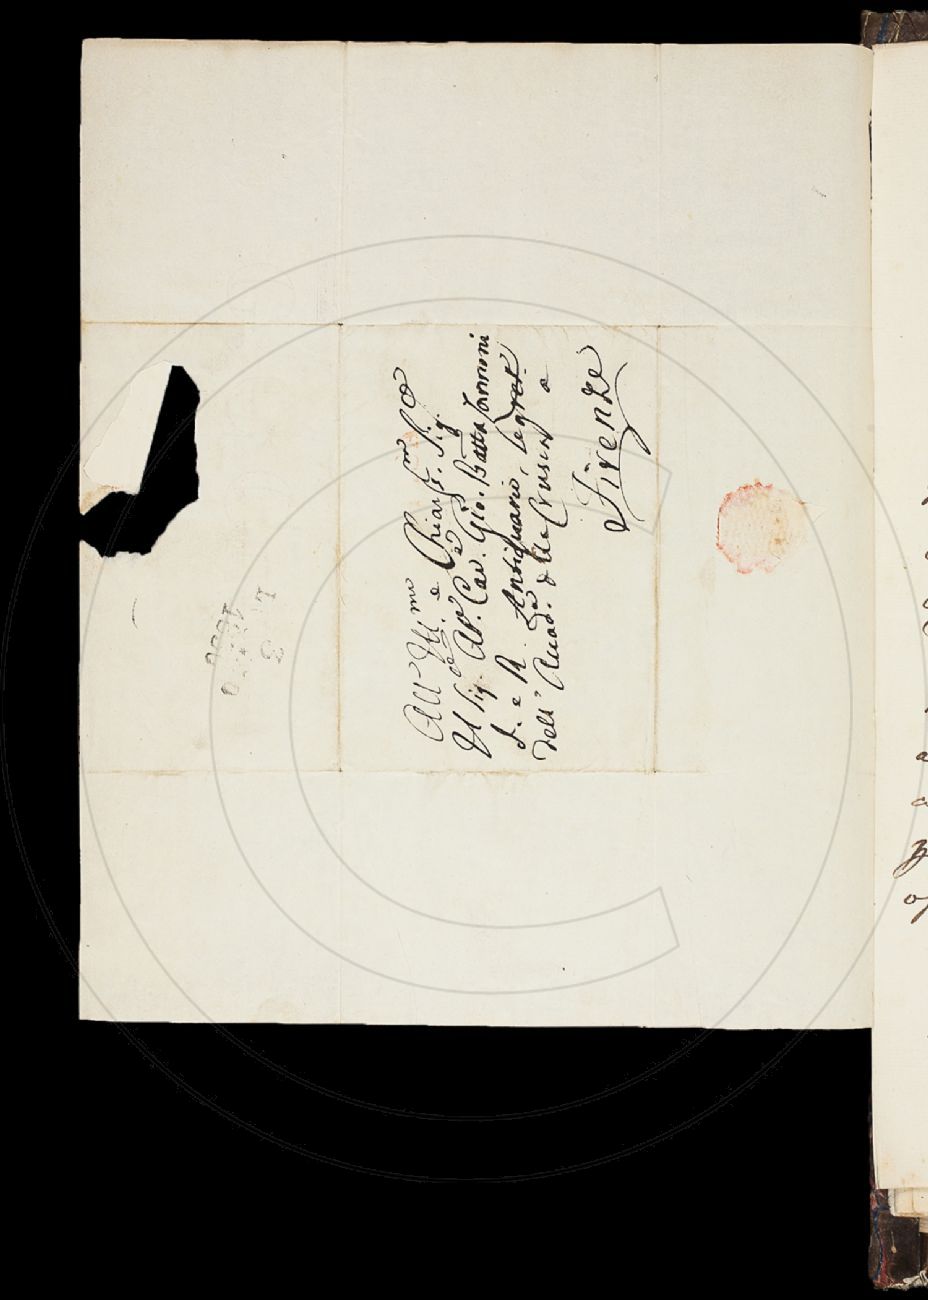 All' Ill.mo e Chiar.mo Sig.
Il Sig. Ab. Cav. Gio. Batta Zannoni
I. e R. Antiquario, Segret.
dell' Accad. della Crusca a
Firenze